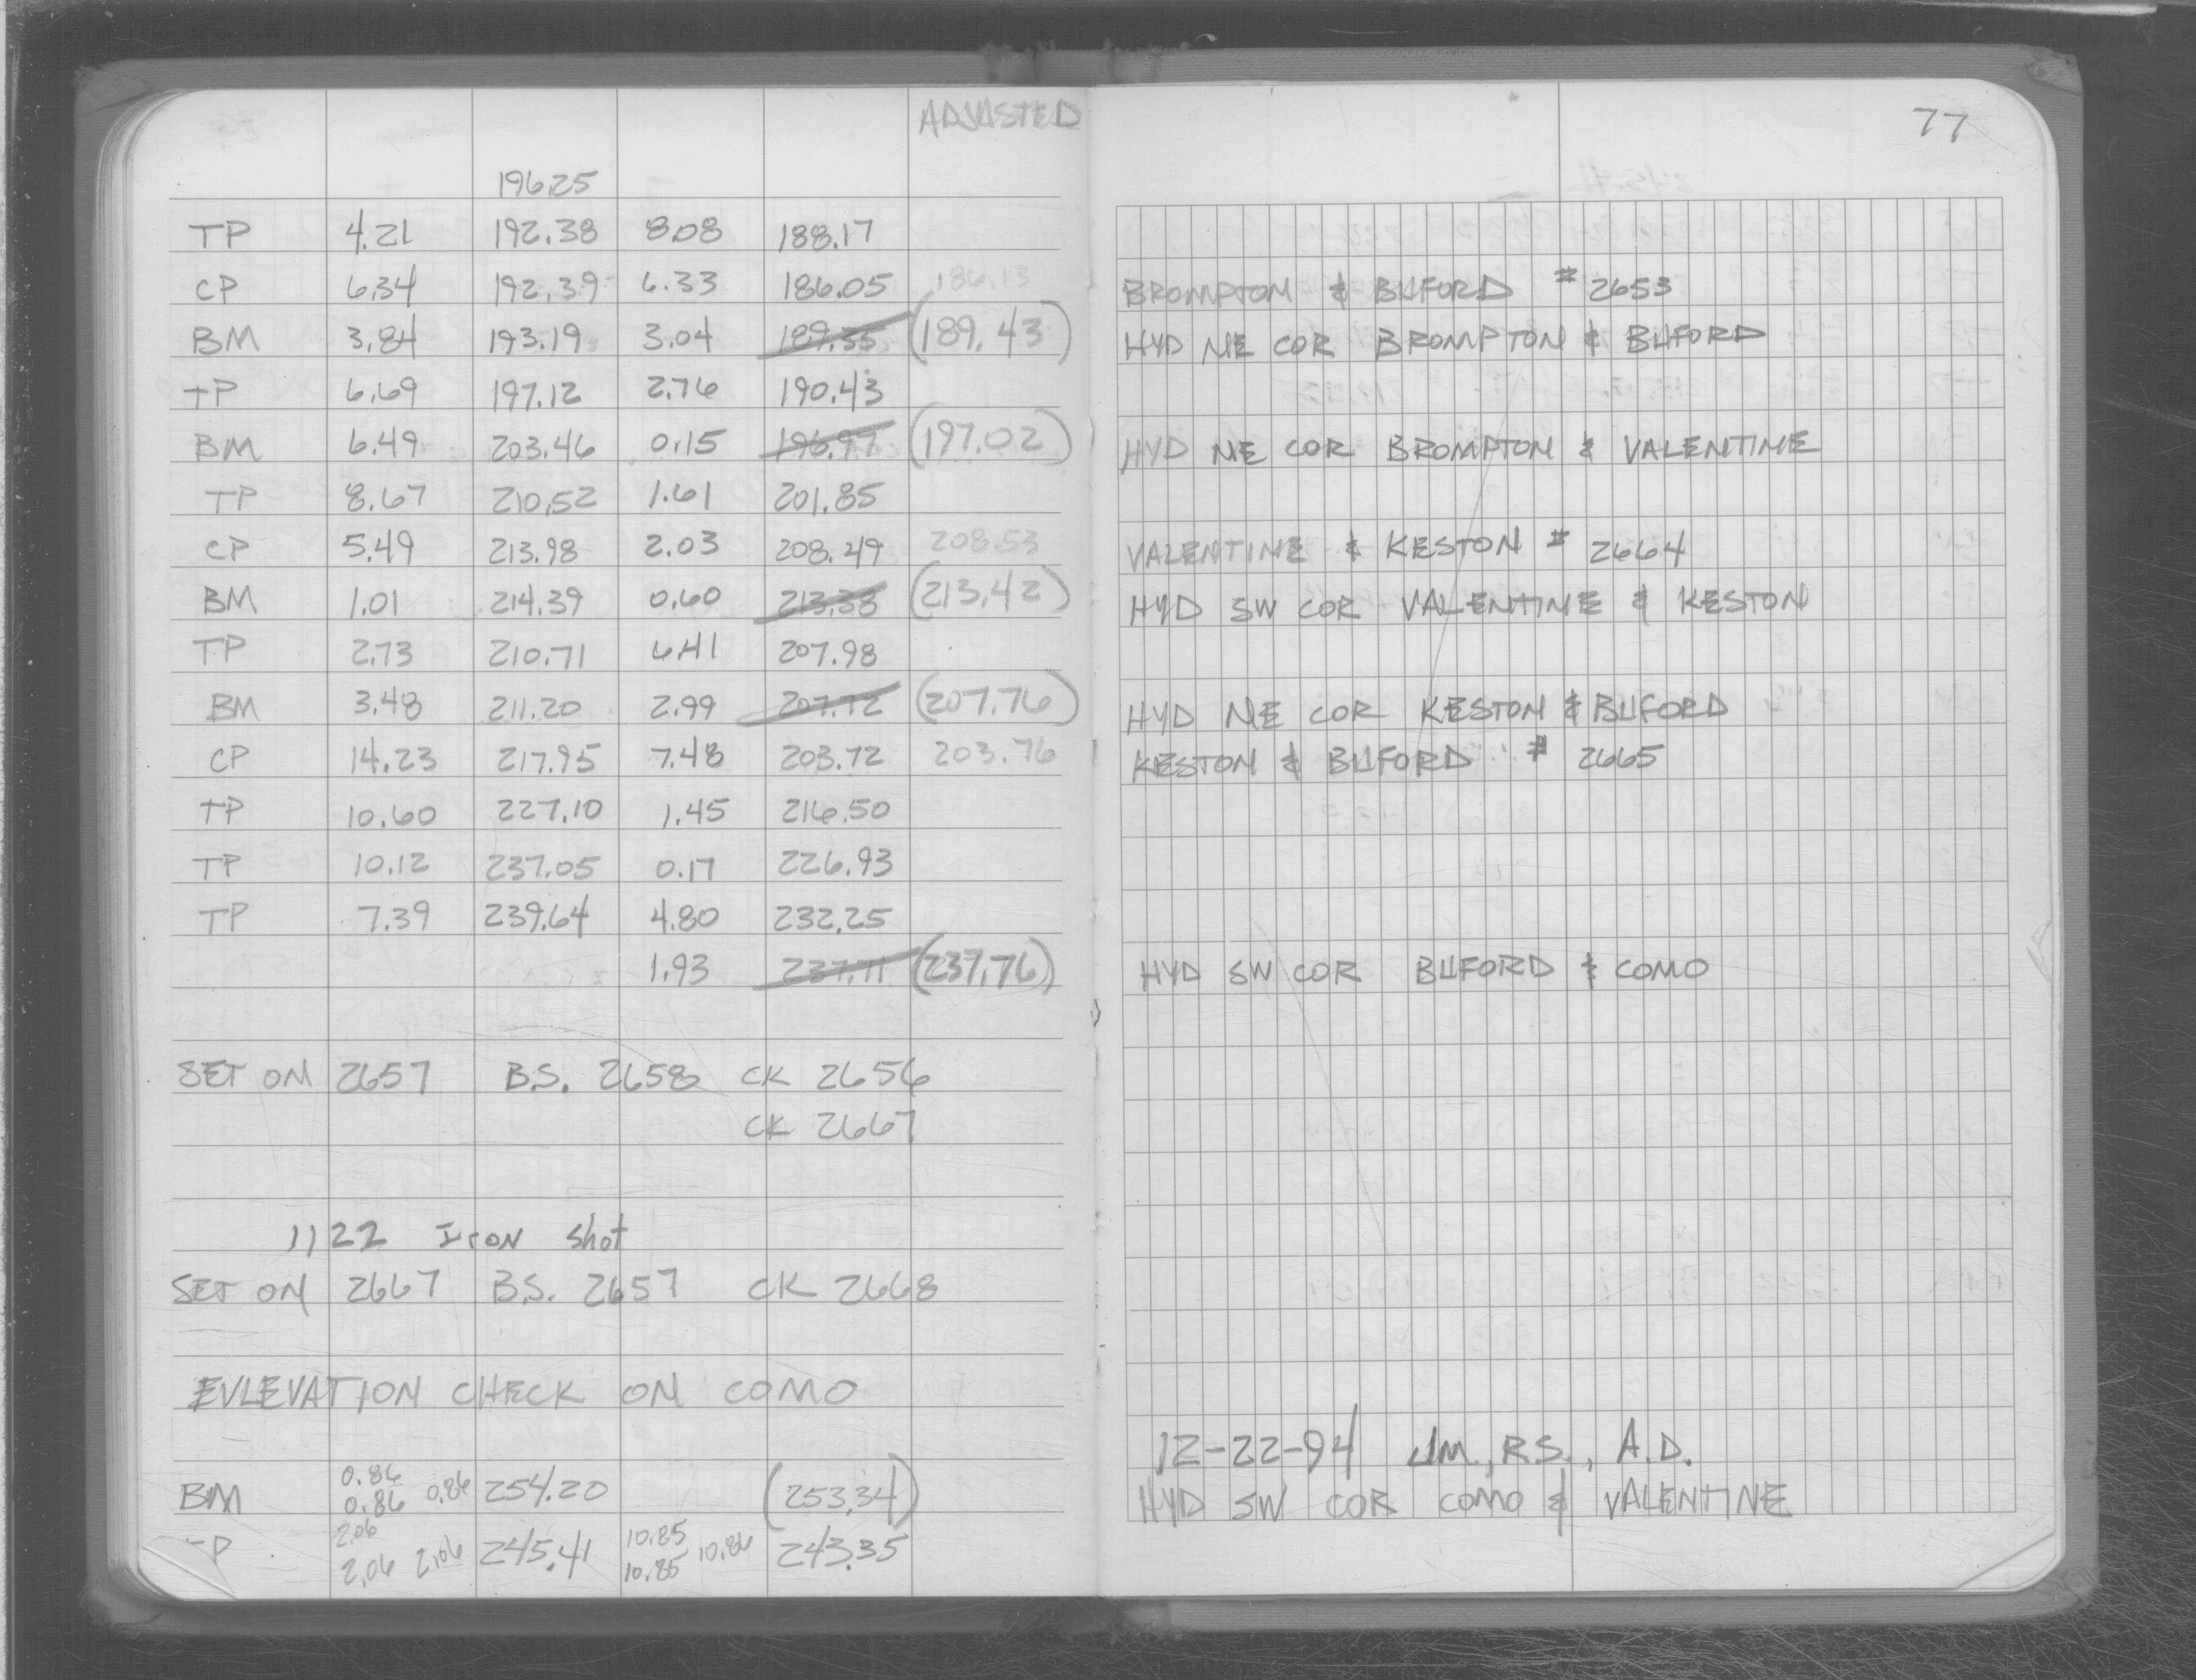 ADJUSTED
77
196.25
TP 4.21 192.38 8.08 188.17
CP 6.34 192.39 6.33 186.05 186.13 BROMPTON & BUFORD # 2653
BM 3.84 193.19 3.04 189.35 (189.43) HYD NE COR BROMPTON & BUFORD
TP 6.69 197.12 2.76 190.43
BM 6.49 203.46 0.15 196.97 (197.02) HYD NE COR BROMPTON & VALENTINE
TP 8.67 210.52 1.61 201.85
CP 5.49 213.98 2.03 208.49 208.53 VALENTINE & KESTON # 2664
BM 1.01 214.39 0.60 213.38 (213.42) HYD SW COR VALENTINE & KESTON
TP 2.73 210.71 6.41 207.98
BM 3.48 211.20 2.99 207.72 (207.76) HYD NE COR KESTON & BUFORD
CP 14.23 217.95 7.48 203.72 203.76 KESTON & BUFORD # 2665
TP 10.60 227.10 1.45 216.50
TP 10.12 237.05 0.17 226.93
TP 7.39 239.64 4.80 232.25
1.93 237.71 (237.76) HYD SW COR BUFORD & COMO
SET ON 2657 B.S. 2658 CK 2656
CK 2667
1122 Iron shot
SET ON 2667 B.S. 2657 CK 2668
EVLEVATION CHECK ON COMO
12-22-94 JM., R.S., A.D.
BM 0.86 0.86 0.86 254.20 (253.34) HYD SW COR COMO & VALENTINE
TP 2.06 2.06 2.06 245.41 10.85 10.85 10.86 243.35